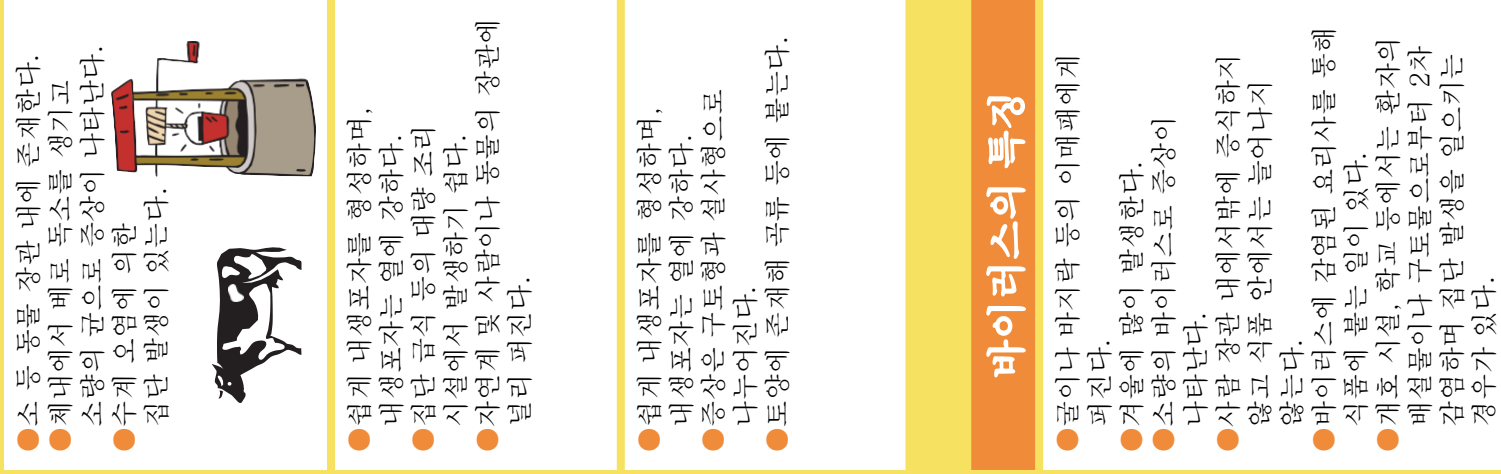 소 등 동물 장관 내에 존재한다.
체내에서 베로 독소를 생기고
소량의 균으로 증상이 나타난다.
수계 오염에 의한
집단 발생이 있는다.
쉽게 내생포자를 형성하며,
내생포자는 열에 강하다.
집단 급식 등의 대량 조리
시설에서 발생하기 쉽다.
자연계 및 사람이나 동물의 장관에
널리 퍼진다.
쉽게 내생포자를 형성하며,
내생포자는 열에 강하다.
증상은 구토형과 설사형으로
나누어진다.
토양에 존재해 곡류 등에 붙는다.
바이러스의 특징
굴이나 바지락 등의 이매패에게
퍼진다.
겨울에 많이 발생한다.
소량의 바이러스로 증상이
나타난다.
사람 장관 내에서밖에 증식하지
않고 식품 안에서는 늘어나지
않는다.
바이러스에 감염된 요리사를 통해
식품에 붙는 일이 있다.
개호 시설, 학교 등에서는 환자의
배설물이나 구토물으로부터 2차
감염하며 집단 발생을 일으키는
경우가 있다.